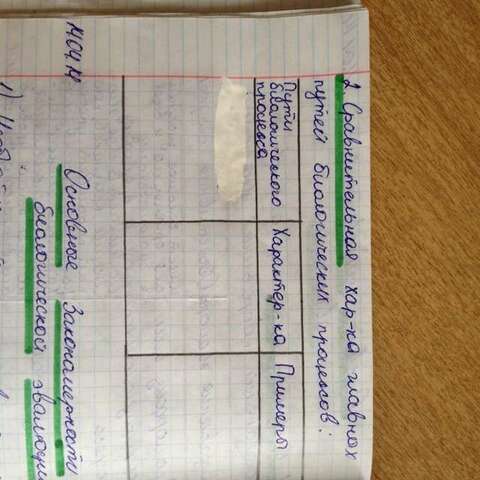 2. Сравнительная хар-ка главных
путей биологических процесов:
Пути
биологического
процесса
Характер-ка
Примеры
14.04.14
Основные Закономерности
биологической эвалюции
1)